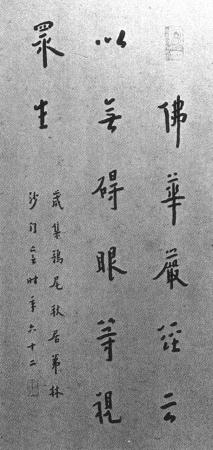 佛華嚴經云
以無碍眼等視
眾生
歲集鶉尾秋居茀林
沙門亡言时年六十二